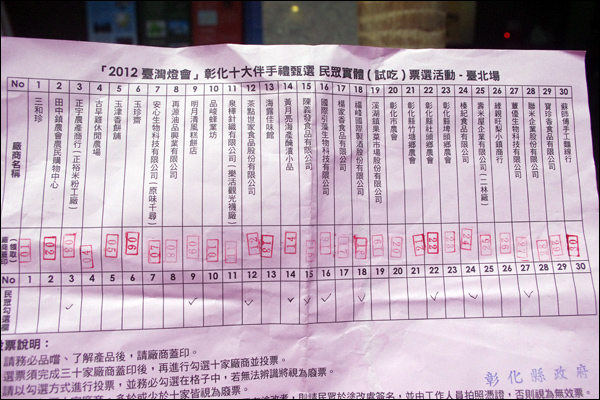 「2012 臺灣燈會」彰化十大伴手禮甄選 民眾實體(試吃)票選活動 - 臺北場
No 1 2 3 4 5 6 7 8 9 10 11 12 13 14 15 16 17 18 19 20 21 22 23 24 25 26 27 28 29 30
廠商名稱
三和珍
田中鎮農會農民購物中心
正宇農產商行(正裕米粉工廠)
古早雞休閒農場
玉津香餅舖
玉珍齋
安心生物科技有限公司(原味千尋)
再源油品興業有限公司
明月清風糕餅店
品峻蜂業坊
泉樺針織有限公司(樂活觀光襪廠)
茶點世家食品股份有限公司
海霧佳味館
黃月亮海產醃漬小品
陳義發食品有限公司
國際引藻生物科技股份有限公司
楊家眷食品有限公司
福峰國際製酒股份有限公司
溪湖鎮果菜市場股份有限公司
彰化市農會
彰化縣竹塘鄉農會
彰化縣社頭鄉農會
彰化縣埤頭鄉農會
榛紀食品有限公司
壽米屋企業有限公司(二林廠)
綠親旺梨小鎮商行
蕈優生物科技有限公司
聯米企業股份有限公司
寶珍香食品有限公司
蘇師傅手工麵線行
(領取)
廠商蓋印
民眾勾選欄
1 2 3 4 5 6 7 8 9 10 11 12 13 14 15 16 17 18 19 20 21 22 23 24 25 26 27 28 29 30
票說明:
請務必品嚐、了解產品後,請廠商蓋印。
選票須完成三十家廠商蓋印後,再進行勾選十家廠商並投票。
請以勾選方式進行投票,並務必勾選在格子中,若無法辨識將視為廢票。
多於或少於十家皆視為廢票。
則請民眾於塗改處簽名,並由工作人員拍照憑證,否則視為無效票。
彰化縣政府